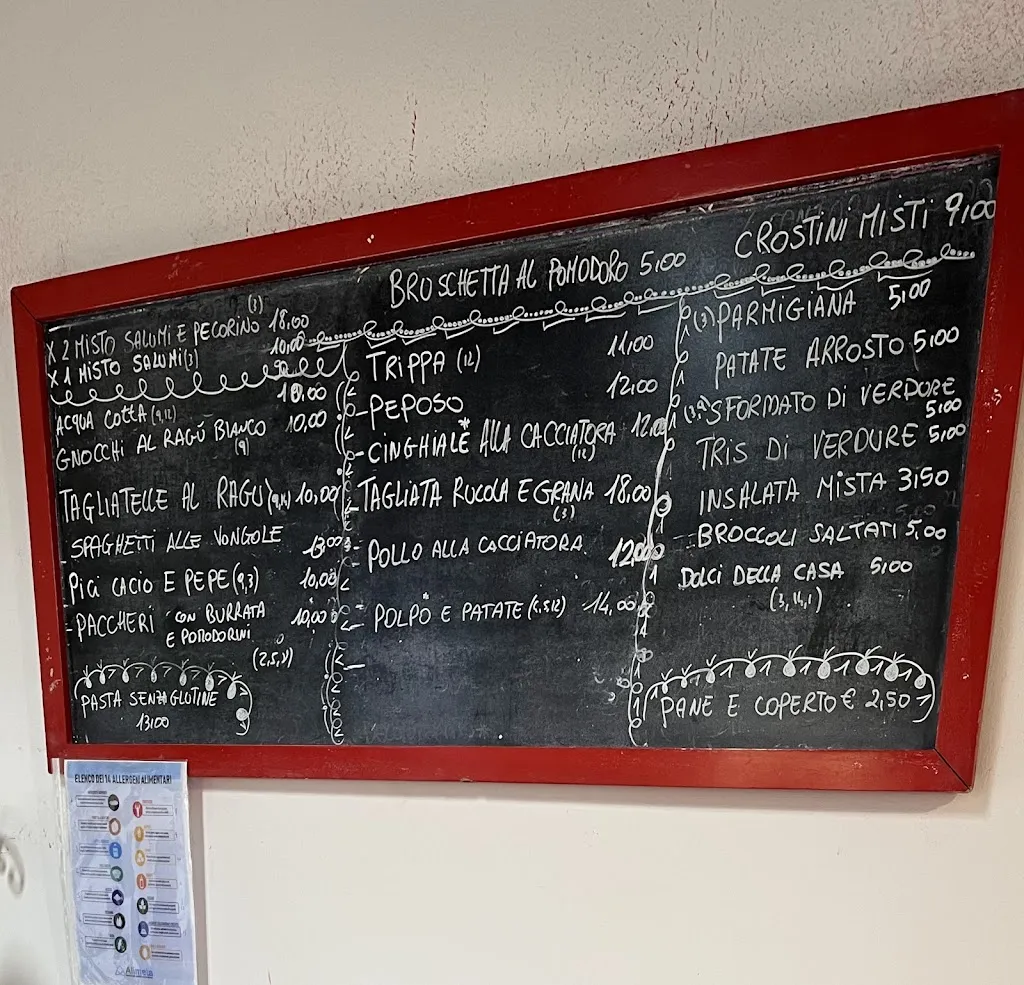 BRUSCHETTA AL POMODORO 5,00
CROSTINI MISTI 9,00
X 2 MISTO SALUMI E PECORINO (3) 18,00
X 1 MISTO SALUMI (3) 10,00
ACQUA COTTA (9,12) 10,00
GNOCCHI AL RAGÚ BIANCO 10,00
(9)
TAGLIATELLE AL RAGU 10,00
SPAGHETTI ALLE VONGOLE 13,00
PICI CACIO E PEPE (9,3) 10,00
- PACCHERI CON BURRATA 10,00
E POMODORINI
PASTA SENZA GLUTINE
13,00
TRIPPA (12) 11,00
- PEPOSO 12,00
- CINGHIALE* ALLA CACCIATORA 12,00
(12)
- TAGLIATA RUCOLA E GRANA 18,00
(3)
- POLLO ALLA CACCIATORA 12,00
- POLPO* E PATATE 14,00
(3) PARMIGIANA 5,00
PATATE ARROSTO 5,00
SFORMATO DI VERDURE
5,00
TRIS DI VERDURE 5,00
INSALATA MISTA 3,50
- BROCCOLI SALTATI 5,00
DOLCI DELLA CASA 5,00
(3,14,1)
PANE E COPERTO € 2,50
ELENCO DEI 14 ALLERGENI ALIMENTARI